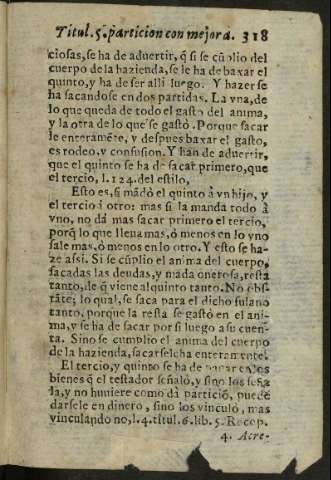 Titul. 5. particion con mejora. 318
ciosas, se ha de aduertir, q̃ si se cũplio del
cuerpo de la hazienda, se le ha de baxar el
quinto, y ha de ser alli luego. Y hazer se
ha sacandose en dos partidas. La vna, de
lo que queda de todo el gasto del anima,
y la otra de lo que se gastò. Porque sacar
le enteramẽte, y despues baxar el gasto,
es rodeo, y confusion. Y han de aduertir,
que el quinto se ha de sacar primero, que
el tercio, l. 124. del estilo,
Esto es, si mãdò el quinto à vn hijo, y
el tercio à otro: mas si la manda todo à
vno, no dà mas sacar primero el tercio,
porq̃ lo que lleua mas, ò menos en lo vno
sale mas, ò menos en lo otro. Y esto se ha-
ze assi. Si se cũplio el anima del cuerpo,
sacadas las deudas, y mãda onerosa, resta
tanto, de q̃ viene al quinto tanto. No obs-
tãte; lo qual, se saca para el dicho fulano
tanto, porque la resta se gastò en el ani-
ma, y se ha de sacar por si luego a su cuen-
ta. Sino se cumplio el anima del cuerpo
de la hazienda, sacarselcha
El tercio, y quinto se ha de pagar en los
bienes q̃ el testador señalò, y sino los seña
la, y no huuiere como dà particiõ, puede
darsele en dinero, sino los vinculò, mas
vinculando no, l. 4. titul. 6. lib. 5. Recop.
4. Acre-